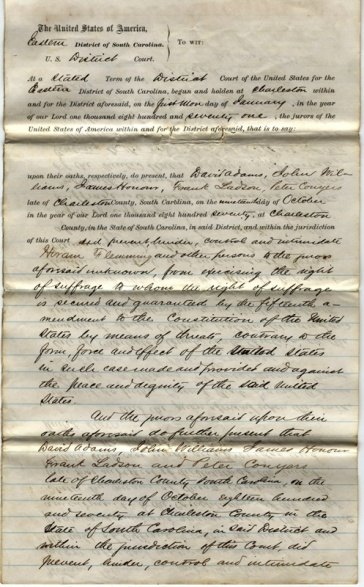 The United States of America,
Eastern District of South Carolina. } To wit:
U. S. District Court.
At a Stated Term of the District Court of the United States for the
Eastern District of South Carolina, begun and holden at Charleston within
and for the District aforesaid, on the first Mon day of January, in the year
of our Lord one thousand eight hundred and seventy one, the jurors of the
United States of America within and for the District aforesaid, that is to say:
upon their oaths, respectively, do present, that David Adams, John Wil-
liams, James Honour, Grant Ladson, Peter Conyers
late of Charleston County, South Carolina, on the nineteenth day of October
in the year of our Lord one thousand eight hundred seventy, at Charleston
County, in the State of South Carolina, in said District, and within the jurisdiction
of this Court did prevent, hinder, control and intimidate
Hiram Flemming and other persons to the jurors
aforesaid unknown, from exercising the right
of suffrage to whom the right of suffrage
is secured and guaranteed by the fifteenth a-
mendment to the Constitution of the United
States by means of threats, contrary to the
form, force and effect of the United States
in such case made and provided and against
the peace and dignity of the said United
States.
And the jurors aforesaid upon their
oaths aforesaid do further present that
David Adams, John Williams James Honour
Grant Ladson and Peter Conyers
late of Charleston County South Carolina, on the
nineteenth day of October eighteen hundred
and seventy at Charleston County in the
State of South Carolina, in said District and
within the jurisdiction of this Court did
prevent, hinder, control and intimidate